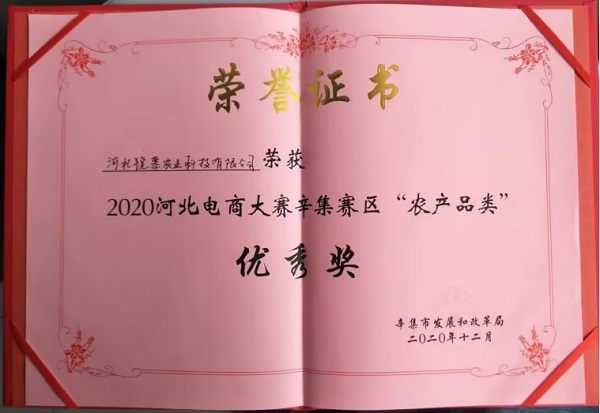 荣誉证书
河北皖黍农业科技有限公司 荣获
2020河北电商大赛辛集赛区“农产品类”
优秀奖
辛集市发展和改革局
二〇二〇年十二月